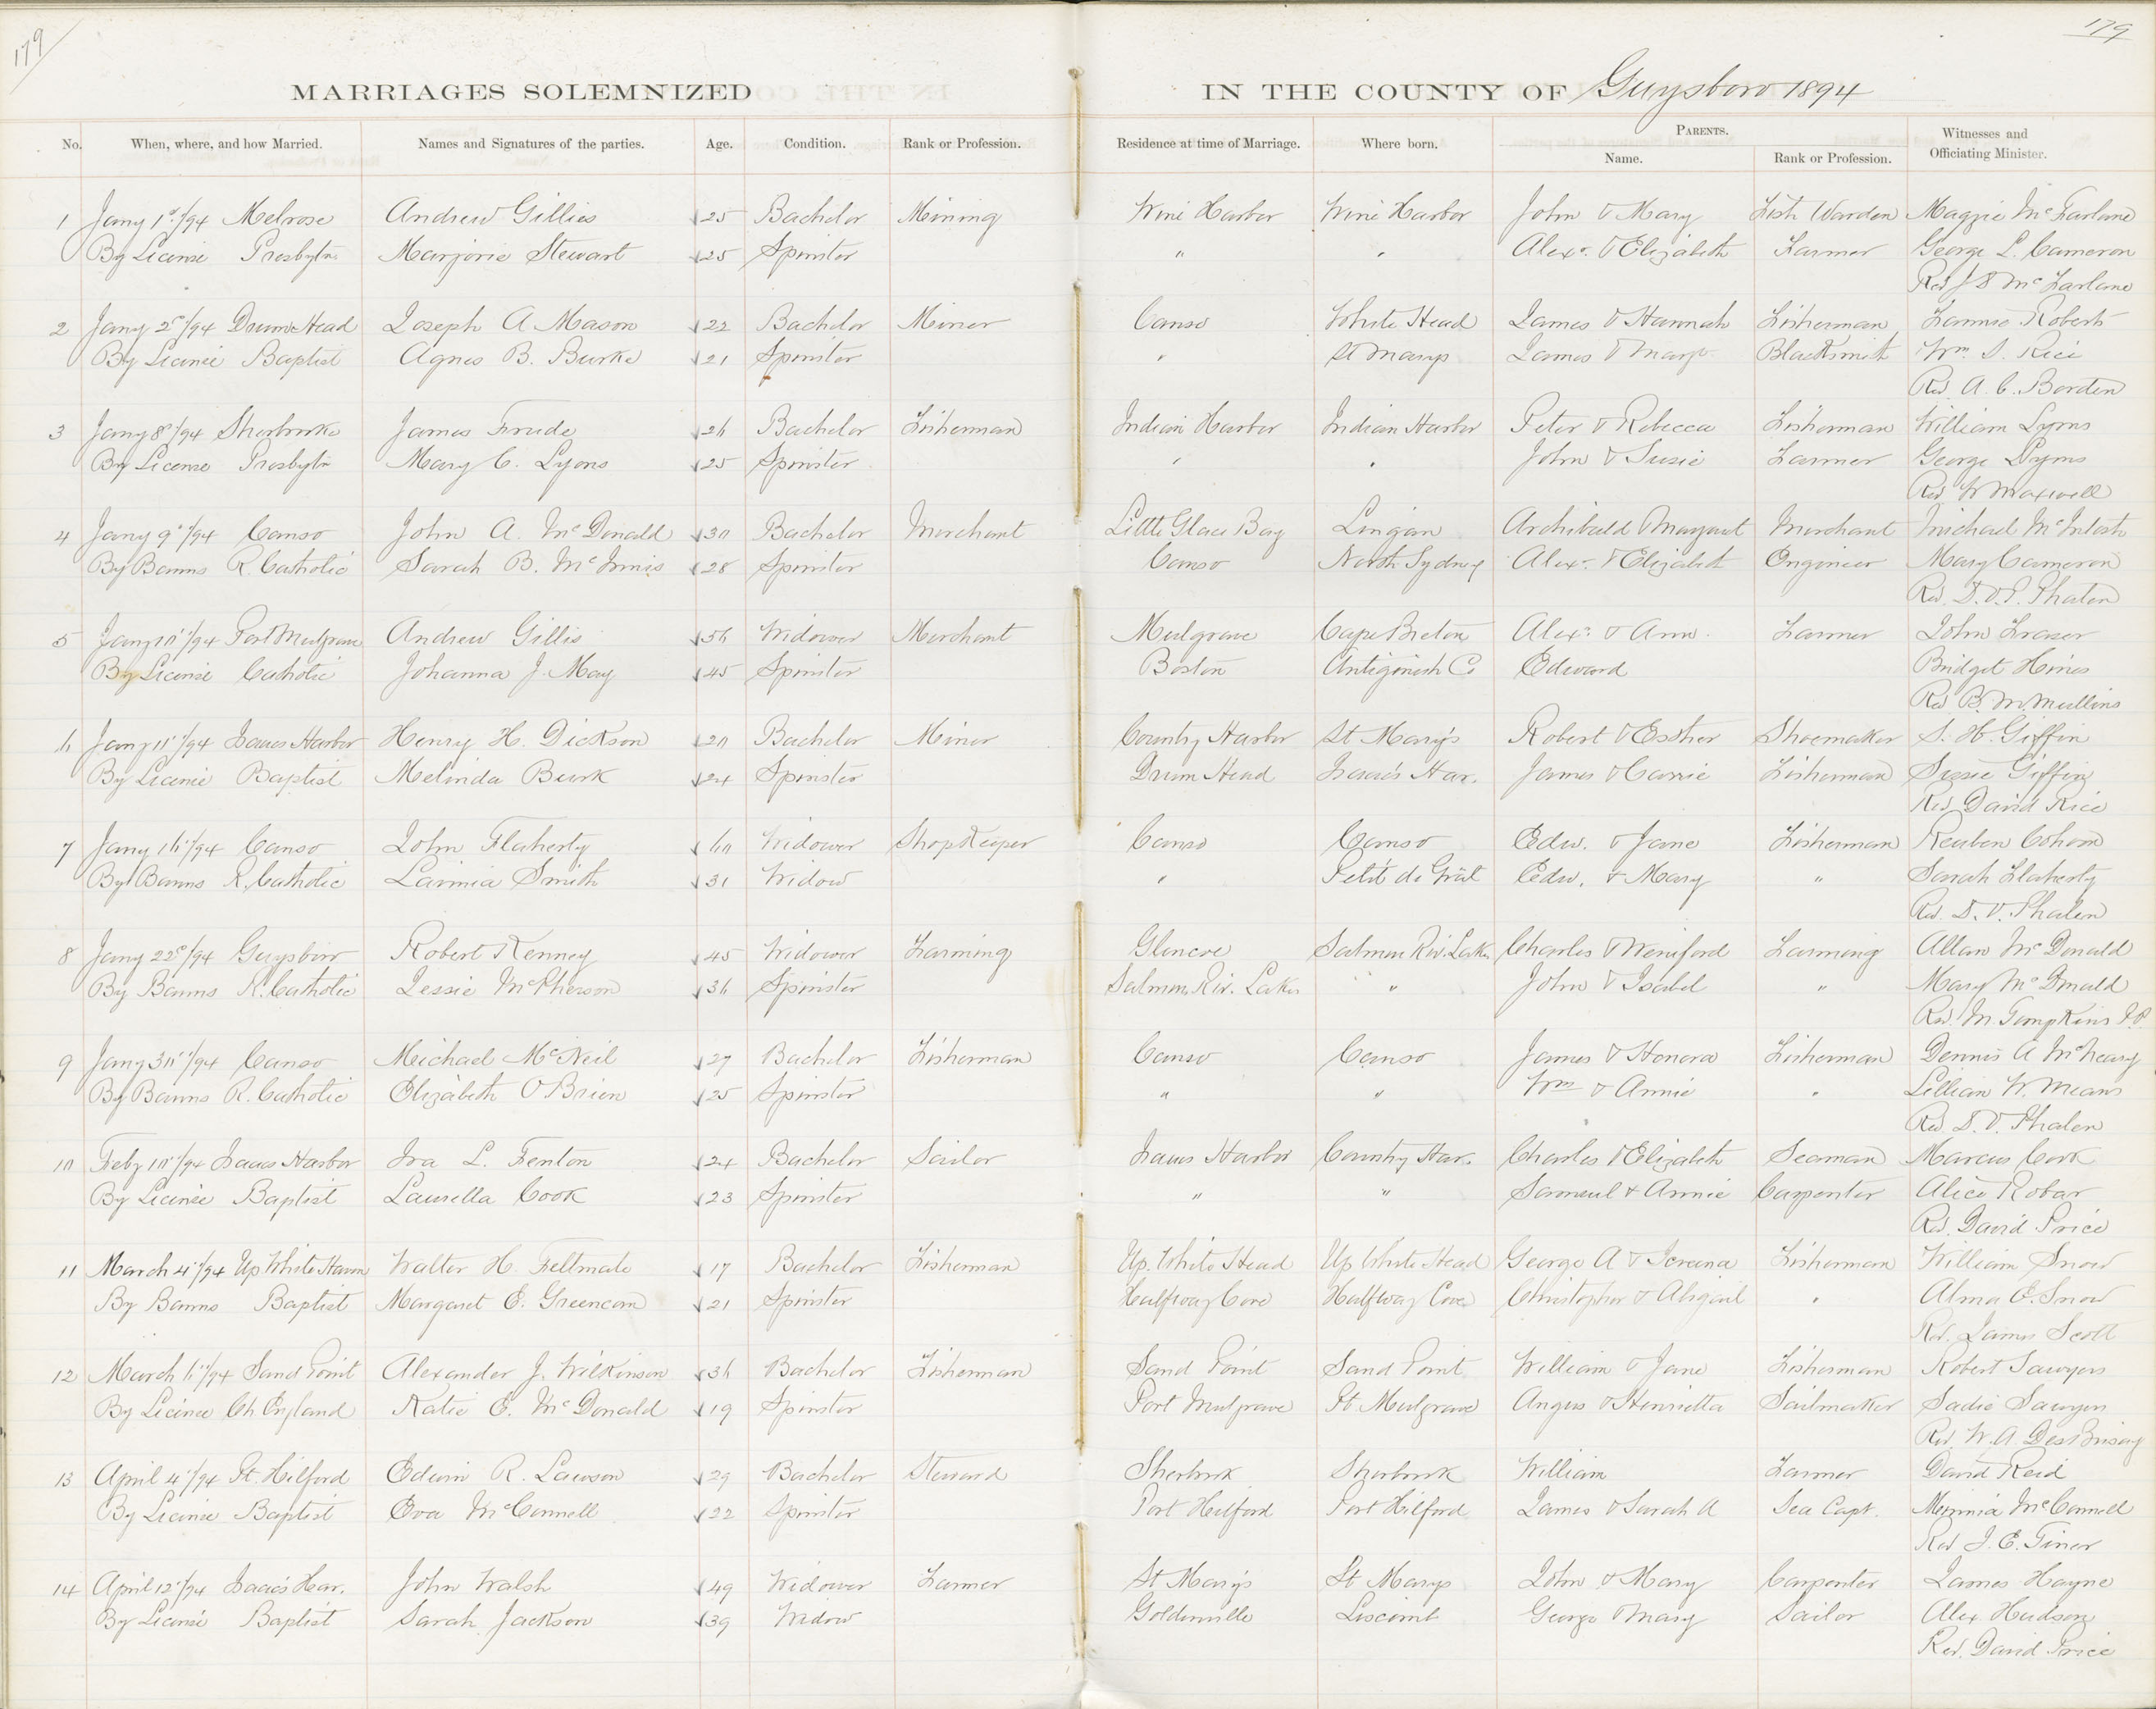 179
179
MARRIAGES SOLEMNIZED IN THE COUNTY OF Guysboro 1894
No. When, where, and how Married. Names and Signatures of the parties. Age. Condition. Rank or Profession. Residence at time of Marriage. Where born. PARENTS. Name. Rank or Profession. Witnesses and Officiating Minister.
1 Jany 1st/94 Melrose Andrew Gillies 25 Bachelor Mining Wine Harbor Wine Harbor John & Mary Fish Warden Maggie McFarlane
By License Presbytn Marjorie Stewart 25 Spinster " " Alexr. & Elizabeth Farmer George L. Cameron
Rev J F McFarlane
2 Jany 2d/94 Drum Head Joseph A Mason 22 Bachelor Miner Canso White Head James & Hannah Fisherman Fannie Roberts
By License Baptist Agnes B. Burke 21 Spinster " St Marys James & Mary Blacksmith Wm. S. Rice
Rev A. C. Borden
3 Jany 8"/94 Sherbrooke James Frude 26 Bachelor Fisherman Indian Harbor Indian Harbor Peter & Rebecca Fisherman William Lyons
By License Presbytn Mary C. Lyons 25 Spinster " " John & Susie Farmer George Lyons
Rev W Maxwell
4 Jany 9"/94 Canso John A. McDonald 30 Bachelor Merchant Little Glace Bay Lingan Archibald & Margaret Merchant Michael McIntosh
By Banns R. Catholic Sarah B. McInnis 28 Spinster Canso North Sydney Alexr. & Elizabeth Engineer Mary Cameron
Rev. D. V. Phalen
5 Jany 10"/94 Port Mulgrave Andrew Gillis 56 Widower Merchant Mulgrave Cape Breton Alexr. & Ann Farmer John Fraser
By License Catholic Johanna J. May 45 Spinster Boston Antigonish Co Edward Bridget Hines
Rev B. M. Mullins
6 Jany 11"/94 Isaacs Harbor Henry H. Dickson 20 Bachelor Miner Country Harbor St Mary's Robert & Esther Shoemaker S. H. Giffin
By License Baptist Melinda Burk 24 Spinster Drum Head Isaac's Har. James & Carrie Fisherman Sissie Giffin
Rev David Price
7 Jany 16"/94 Canso John Flaherty 60 Widower Shop Keeper Canso Canso Edw. & Jane Fisherman Reuben Cohoon
By Banns R. Catholic Lavinia Smith 31 Widow " Petit de Grât Edw. & Mary " Sarah Flaherty
Rev. D. V. Phalen
8 Jany 22d/94 Guysboro Robert Kenney 45 Widower Farming Glencoe Salmon Riv. Lakes Charles & Weniford Farming Allan McDonald
By Banns R. Catholic Jessie McPherson 36 Spinster Salmon Riv. Lakes " John & Isabel " Mary McDonald
Rev. M. Tompkins P.P.
9 Jany 30"/94 Canso Michael McNeil 27 Bachelor Fisherman Canso Canso James & Honora Fisherman Dennis A McNeary
By Banns R. Catholic Elizabeth O'Brien 25 Spinster " " Wm & Annie " Lillian W. Means
Rev D. V. Phalen
10 Feby 10"/94 Isaacs Harbor Ira L. Fenton 24 Bachelor Sailor Isaacs Harbor Country Har. Charles & Elizabeth Seaman Marcus Cook
By License Baptist Laurella Cook 23 Spinster " " Samuel & Annie Carpenter Alice Robar
Rev. David Price
11 March 4"/94 Up White Haven Walter H. Feltmate 17 Bachelor Fisherman Up. White Head Up White Head George A & Fisherman William Snow
By Banns Baptist Margaret E. Greencorn 21 Spinster Halfway Cove Halfway Cove Christopher & Abigail " Alma E. Snow
Rev. James Scott
12 March 6"/94 Sand Point Alexander J. Wilkinson 36 Bachelor Fisherman Sand Point Sand Point William & Jane Fisherman Robert Sawyers
By License Ch. England Katie E. McDonald 19 Spinster Port Mulgrave Pt. Mulgrave Angus & Henrietta Sailmaker Sadie Sawyers
Rev. W. A. DesBrisay
13 April 4"/94 Pt. Hilford Edwin R. Lawson 29 Bachelor Steward Sherbrook Sherbrook William Farmer David Reid
By License Baptist Eva McConnell 22 Spinster Port Hilford Port Hilford James & Sarah A Sea Capt. Minnie McConnell
Rev J. E. Tiner
14 April 12"/94 Isaac's Har. John Walsh 49 Widower Farmer St Mary's St Marys John & Mary Carpenter James Hayne
By License Baptist Sarah Jackson 39 Widow Goldenville Liscomb George & Mary Sailor Alex Hudson
Rev. David Price